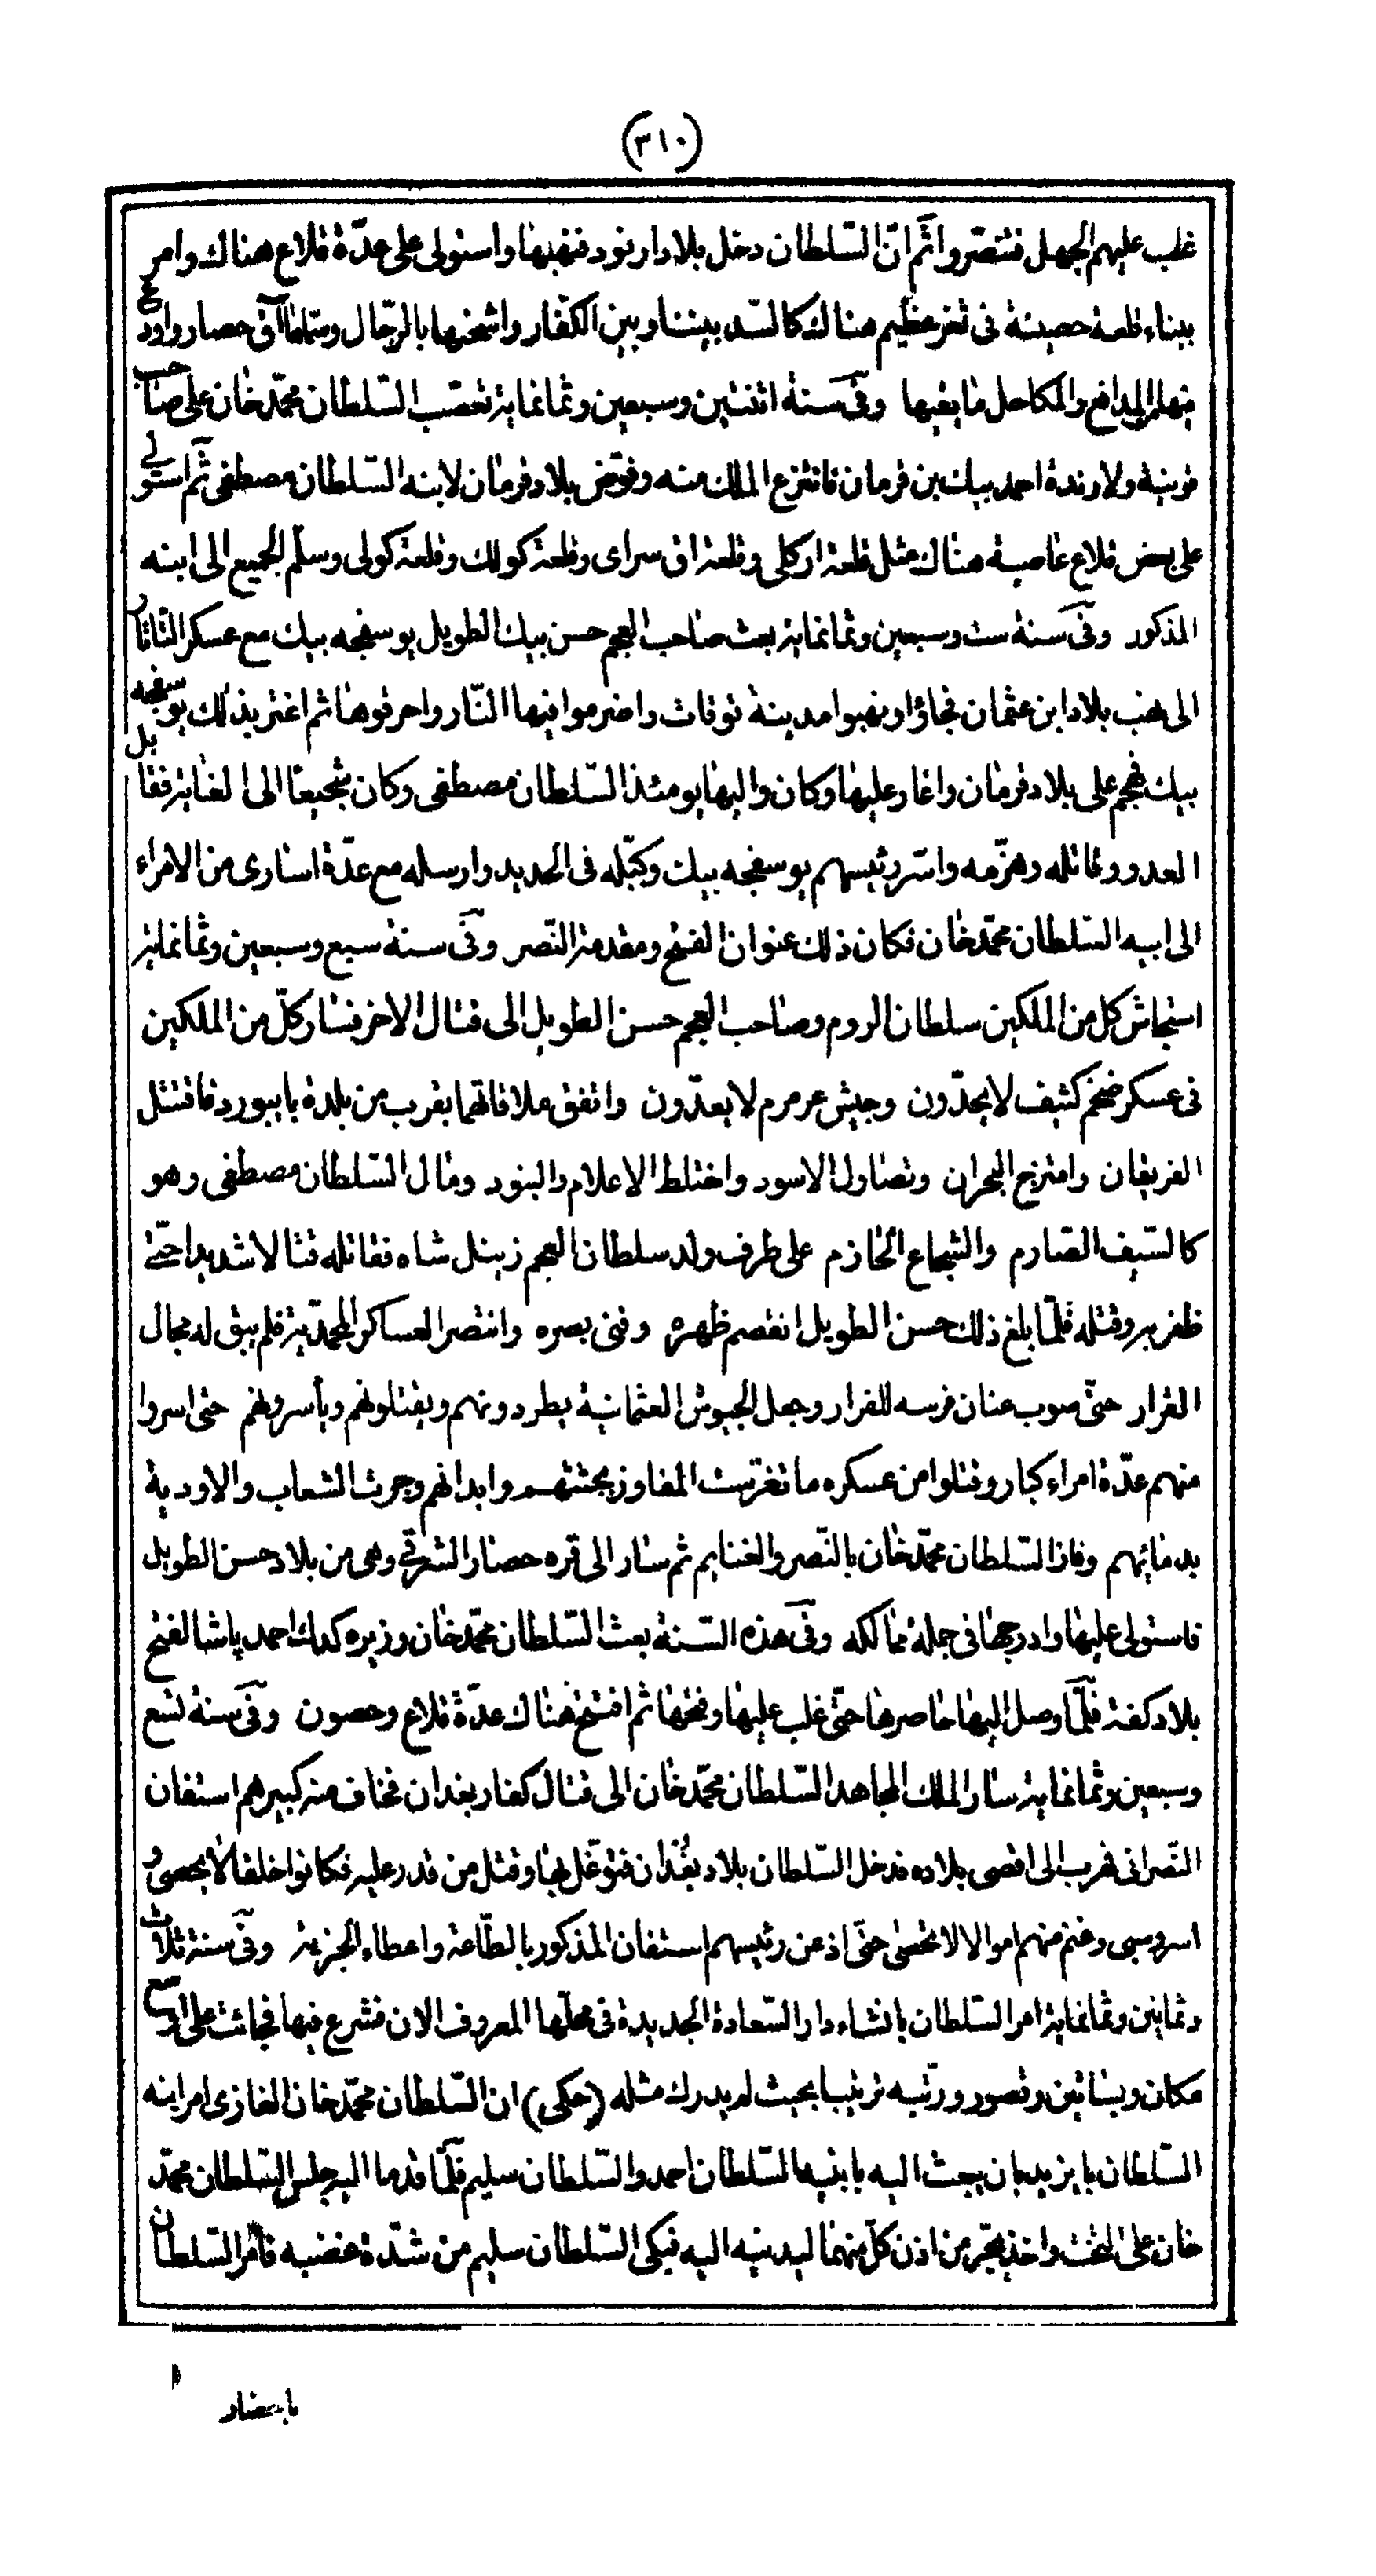 (٣١٠)
غلب عليهم الجهل فتنصّروا ثم انّ السّلطان دخل بلاد ارنود فنهبها واستولى على عدّة قلاع هناك وامر
ببناء قلعة حصينة فى ثغر عظيم هناك كالسّد بيننا وبين الكفّار واشحنها بالرّجال وسمّاها آق حصار واودع
فيها من المدافع والمكاحل ما يغيها وفى سنة اثنتين وسبعين وثمانماية تعصّب السّلطان محمّد خان على صاحب
قونية ولارندة احمد بيك بن قرمان فانتزع الملك منه وفوّض بلاد قرمان لابنه السّلطان مصطفى ثم استولى
على بعض قلاع عاصية هناك مثل قلعة اركلى وقلعة اق سراى وقلعة كولك وقلعة كولى وسلّم الجميع الى ابنه
المذكور وفى سنة ست وسبعين وثمانماية بعث صاحب العجم حسن بيك الطويل يوسفجه بيك مع عسكر التاتار
الى نهب بلاد ابن عثمان فجاؤا ونهبوا مدينة توقات واضرموا فيها النّار واحرقوها ثم اغتر بذلك يوسفجه
بيك فهجم على بلاد قرمان واغار عليها وكان واليها يومئذ السّلطان مصطفى وكان شجيعا الى الغاية فقابل
العدو وقاتله وهزّمه واسّر رئيسهم يوسفجه بيك وكبّله فى الحديد وارسله مع عدّة اسارى من الامراء
الى ابيه السّلطان محمّد خان فكان ذلك عنوان الفتح ومقدمة النّصر وفى سنة سبع وسبعين وثمانماية
استجاش كل من الملكين سلطان الروم وصاحب العجم حسن الطويل الى قتال الاخر فسار كلّ من الملكين
فى عسكر ضخم كثيف لا يحدّون وجيش عرمرم لا يعدّون واتفق ملاقاتهما بقرب من بلدة بايبورد فاقتتل
الفريقان وامتزج البحران وتصاول الاسود واختلط الاعلام والبنود ومال السّلطان مصطفى وهو
كالسّيف الصّارم والشجاع الحازم على طرف ولد سلطان العجم زينل شاه فقاتله قتالا شديدا حتّى
ظفر به وقتله فلمّا بلغ ذلك حسن الطويل انقصم ظهره وفنى بصره وانتصر العساكر المحمّدية فلم يبق له مجال
القرار حتّى صوب عنان فرسه للفرار وجعل الجيوش العثمانية يطردونهم ويقتلونهم ويأسرونهم حتى اسروا
منهم عدّة امراء كبار وقتلوا من عسكره ما تغرّست المفاوز بجثتهم وابدانهم وجرت الشعاب والاودية
بدمائهم وفاز السّلطان محمّد خان بالنّصر والغنايم ثم سار الى قره حصار الشرقى وهى من بلاد حسن الطويل
فاستولى عليها وادرجها فى جملة ممالكه وفى هذه السّنة بعث السّلطان محمّد خان وزيره كدك احمد پاشا لفتح
بلاد كفة فلمّا وصل اليها حاصرها حتّى غلب عليها وفتحها ثم افتتح هناك عدّة قلاع وحصون وفى سنة تسع
وسبعين وثمانماية سار الملك المجاهد السّلطان محمّد خان الى قتال كفار بغدان فخاف منه كبيرهم استفان
النّصرانى فهرب الى اقصى بلاده فدخل السّلطان بلاد بغدان فتوغّل بها وقتل من قدر عليه فكانوا خلقا لا يحصى و
اسر وسبى وغنم منهم اموالا لا تحصى حتّى اذعن رئيسهم استفان المذكور بالطّاعة واعطاء الجزية وفى سنة ثلاث
وثمانين وثمانماية امر السّلطان بانشاء دار السّعادة الجديدة فى محلّها المعروف الان فشرع فيها فجائت على اوسع
مكان وبساتين وقصور ورتّبه ترتيبا بحيث لم يدرك مثله (حكى) ان السّلطان محمّد خان الغازى امر ابنه
السّلطان بايزيد بان يبعث اليه بابنيه السّلطان احمد والسّلطان سليم فلمّا قدما اليه جلس السّلطان محمّد
خان على التخت واخذ يجّر من اذن كلّ منهما ليدنيه اليه فبكى السّلطان سليم من شدّة غضبه فامر السّلطان
باحضار